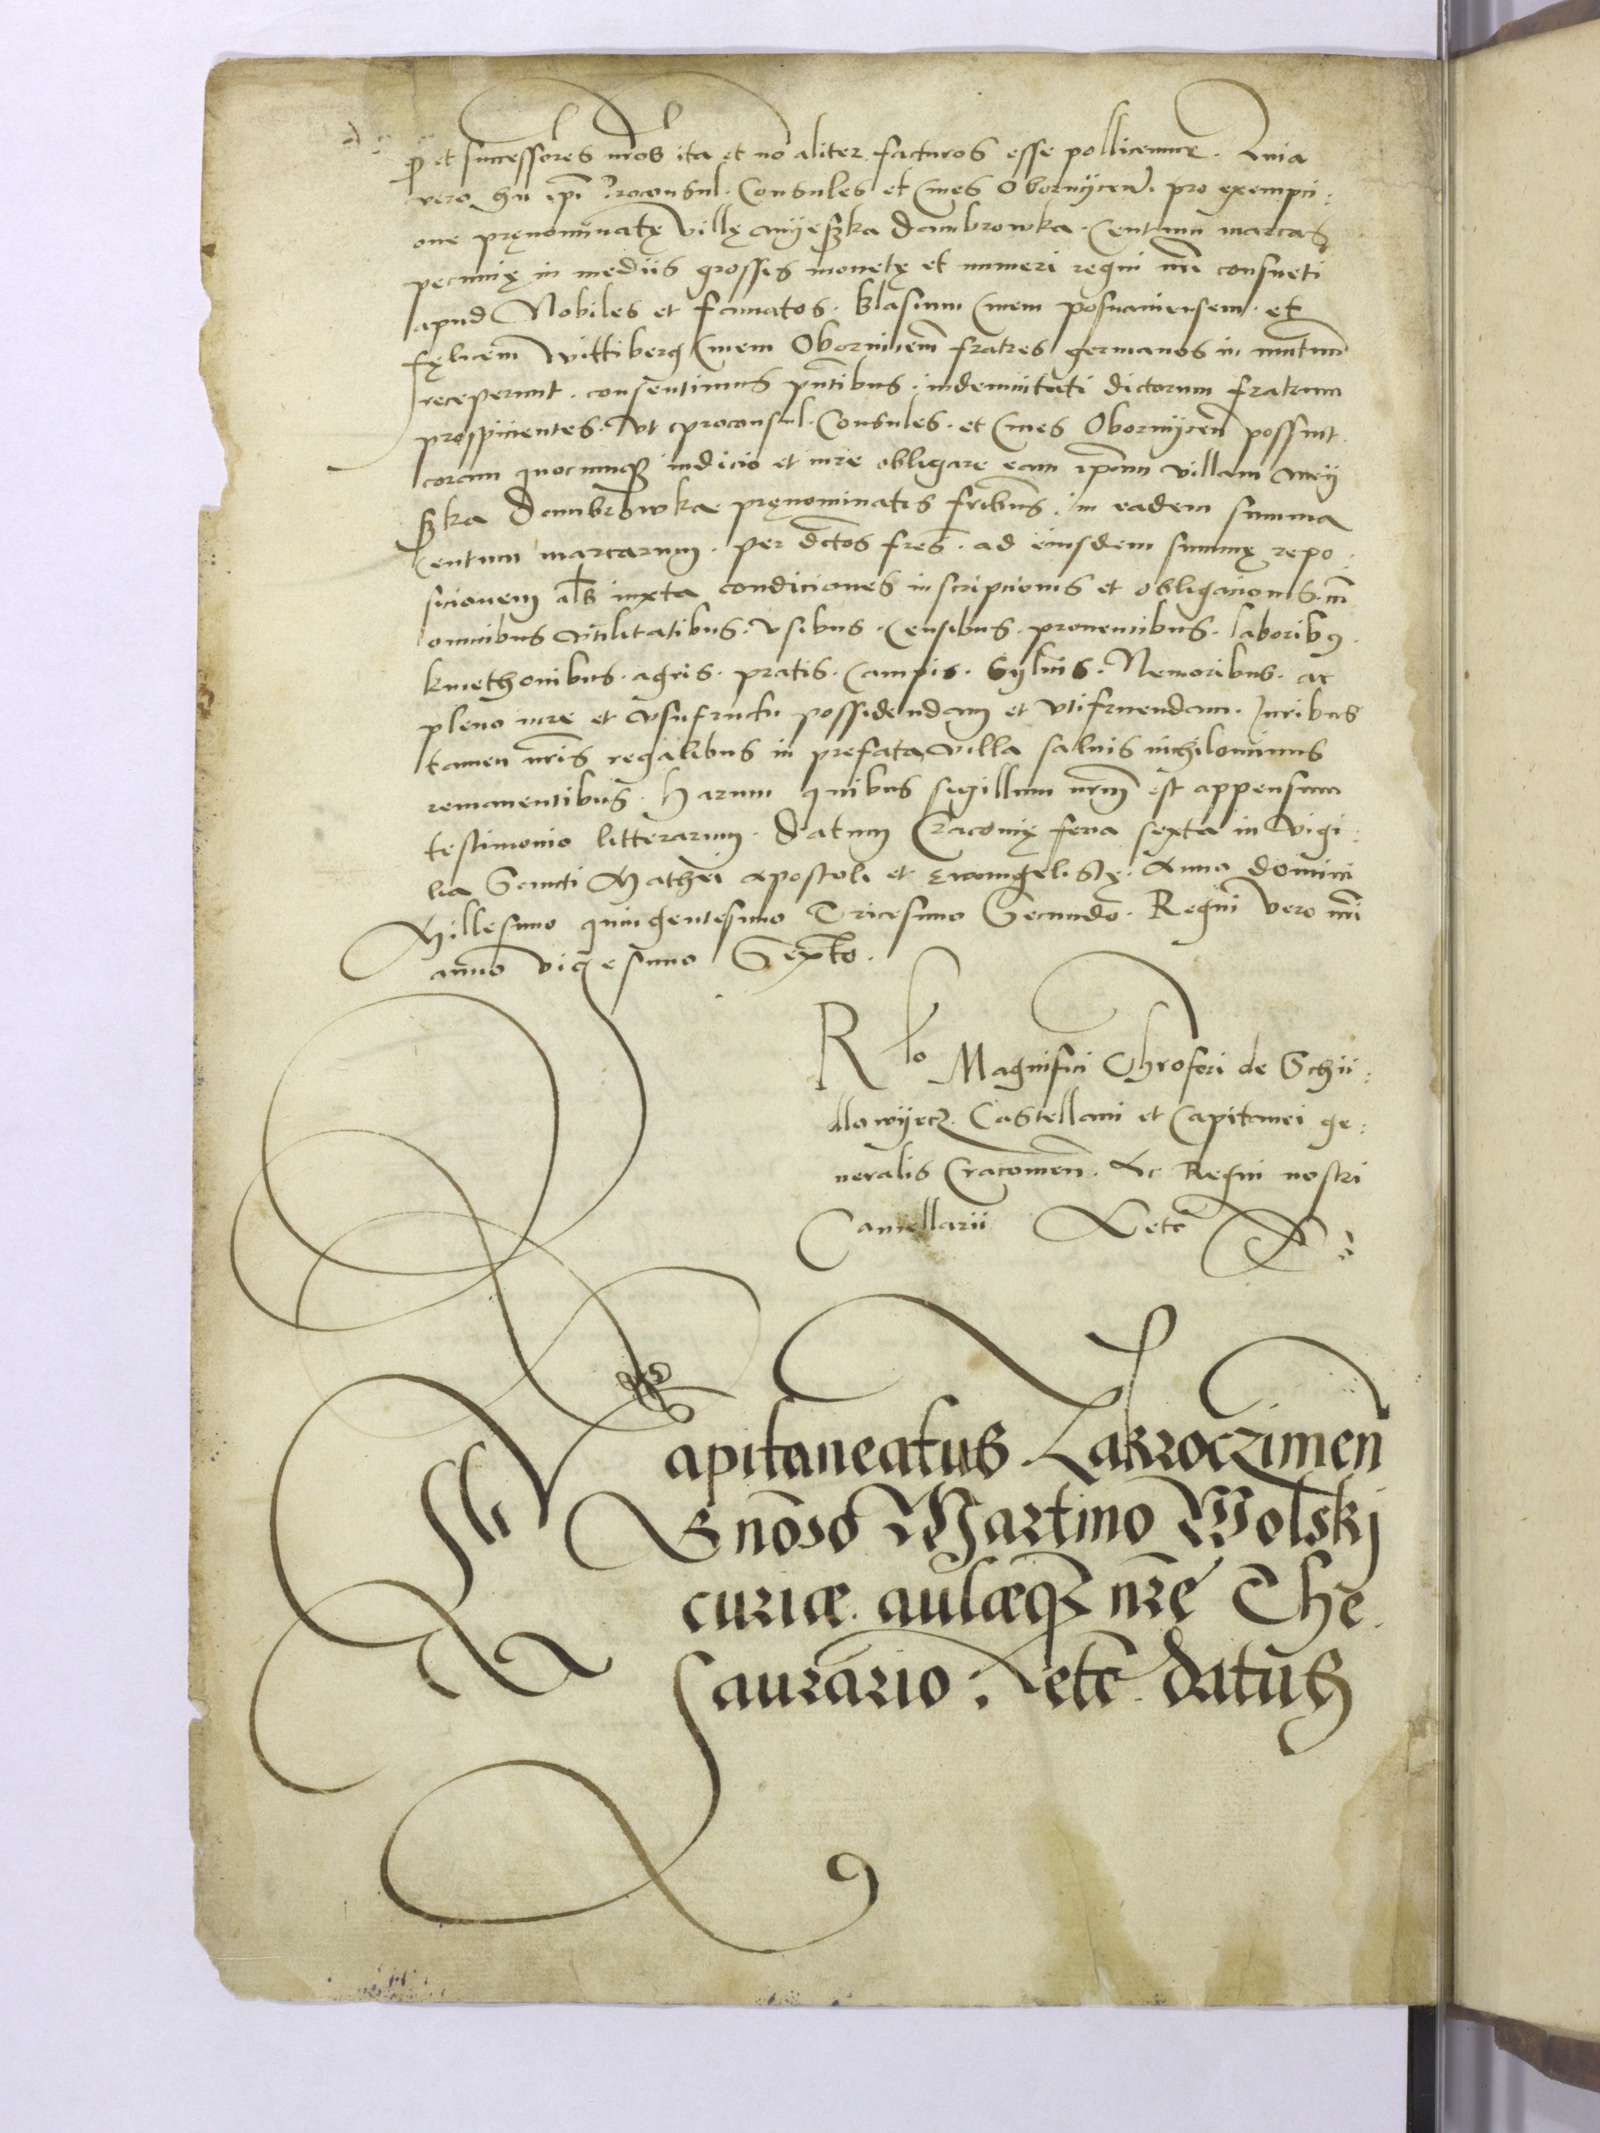 et successores nros ita et no aliter facturos esse pollicemur. Quia
vero hii ipi Proconsul. Consules et Cives Obornijcen. pro exempci:
one pręnominatę Villę Mijeska Dambrowka. Centum marcas
pecunię in mediis grossis monetę et numeri regni nri consueti
apud Nobiles et famatos. Blasium Civem posnaniensem. et
fęlicem Wittiberg Civem Obornicen fratres germanos in mutuum
receperunt. consentimus pntibus. indemnitati dictorum fratrum
prospicientes. Ut proconsul. Consules. et Cives Obornijcen possint
coram quocunque iudicio et iure obligare eam ipam villam Mey
ska Dambrowka pręnominatis fribus. in eadem summa
Centum marcarum. per dctos fres. ad eiusdem summę repo:
sicionem als iuxta condiciones inscripcionis et obligacionis. cum
omnibus Utilitatibus. Usibus. Censibus. proventibus. laboribus.
kmethonibus. agris. pratis. Campis. Sylvis. Nemoribus. ac
pleno iure et Usufructu possidendam et Utifruendam. Iuribus
tamen nris regalibus in prefata villa salvis nichilominus
remanentibus. Harum quibus sigillum nrum est appensum
testimonio litterarum. Datum Cracovię feria sexta in Vigi:
lia Sancti Mathei apostoli et Evangelistę. Anno domini
Millesimo quingentesimo Tricesimo Secundo. Regni Vero nri
anno Vigesimo Sexto.
Rlo Magnifici Chrofori de Schii:
dlowijecz. Castellani et Capitanei ge:
neralis Cracovien. Ac Regni nostri
Cancellarii etc
Capitaneatus Zakroczimen
Gnoso Martino Wolskj
curiæ aulæq nrę The
saurario etc datus